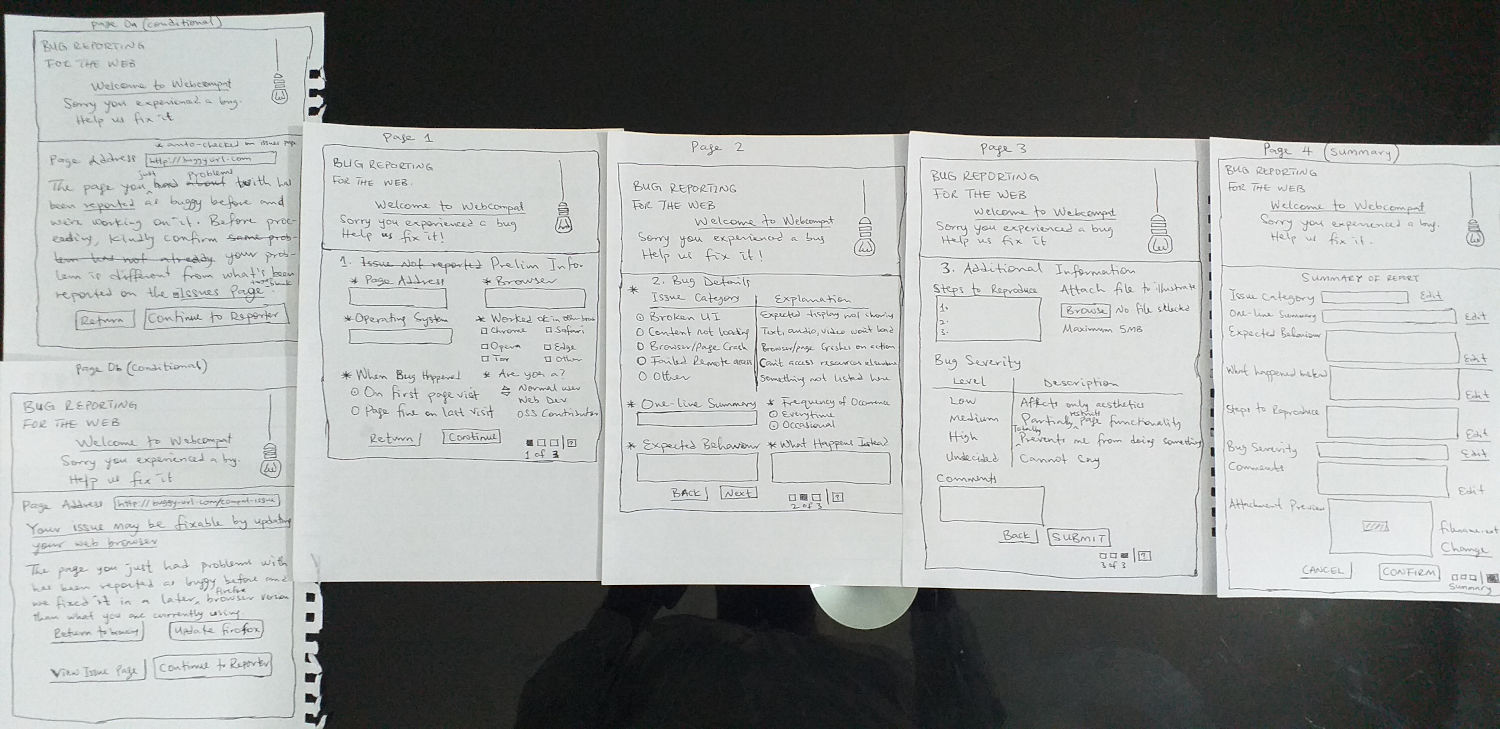 Page 0a (conditional)
BUG REPORTING
FOR THE WEB
Welcome to Webcompat
Sorry you experienced a bug.
Help us fix it
* auto-checked on issues page
Page Address http://buggyurl.com
just Problems
The page you had about with has
been reported as buggy before and
we're working on it. Before proc-
eeding, kindly confirm same prob-
lem has not already your prob-
lem is different from what's been
reported on the Issues Page.
Return Continue to Reporter
Page 0b (Conditional)
BUG REPORTING
FOR THE WEB
Welcome to Webcompat
Sorry you experienced a bug.
Help us fix it
Page Address http://buggy-url.com/compat-issue
Your issue may be fixable by updating
your web browser
The page you just had problems with
has been reported as buggy before and
we fixed it in a later Firefox browser version
than what you are currently using.
Return to Update Firefox
View Issue Page Continue to Reporter
Page 1
BUG REPORTING
FOR THE WEB.
Welcome to Webcompat
Sorry you experienced a bug
Help us fix it!
1. Issue Not reported Prelim Info.
* Page Address * Browser
* Operating System * Worked ok in other brow
Chrome Safari
Opera Edge
Tor Other
* When Bug Happened * Are you a?
On first page visit Normal user
Web Dev
Page fine on last visit OSS Contributor
Return Continue
1 of 3 ?
Page 2
BUG REPORTING
FOR THE WEB
Welcome to Webcompat
Sorry you experienced a bug
Help us fix it!
2. Bug Details
* Issue Category Explanation
Broken UI Expected display not showing
Content not loading Text, audio, video won't load
Browser/Page Crash Browser/page Crashes on action
Failed Remote access Can't access resources elsewhere
Other Something not listed here
* One-line Summary * Frequency of Occurence
Everytime
Occasional
* Expected Behaviour * What Happens Instead
BACK Next
2 of 3 ?
Page 3
BUG REPORTING
FOR THE WEB
Welcome to Webcompat
Sorry you experienced a bug
Help us fix it
3. Additional Information
Steps to Reproduce Attach file to illustrate
1. Browse No file selected
2.
3. Maximum 5MB
Bug Severity
Level Description
Low Affects only aesthetics
Medium Partially restricts page functionality
High Totally Prevents me from doing something
Undecided Cannot Say
Comments
Back SUBMIT
3 of 3 ?
Page 4 (Summary)
BUG REPORTING
FOR THE WEB
Welcome to Webcompat
Sorry you experienced a bug.
Help us fix it.
SUMMARY OF REPORT
Issue Category Edit
One-line Summary Edit
Expected Behaviour
Edit
What happened instead
Edit
Steps to Reproduce
Edit
Bug Severity Edit
Comments
Edit
Attachment Preview
filename.ext
Change
CANCEL CONFIRM
Summary